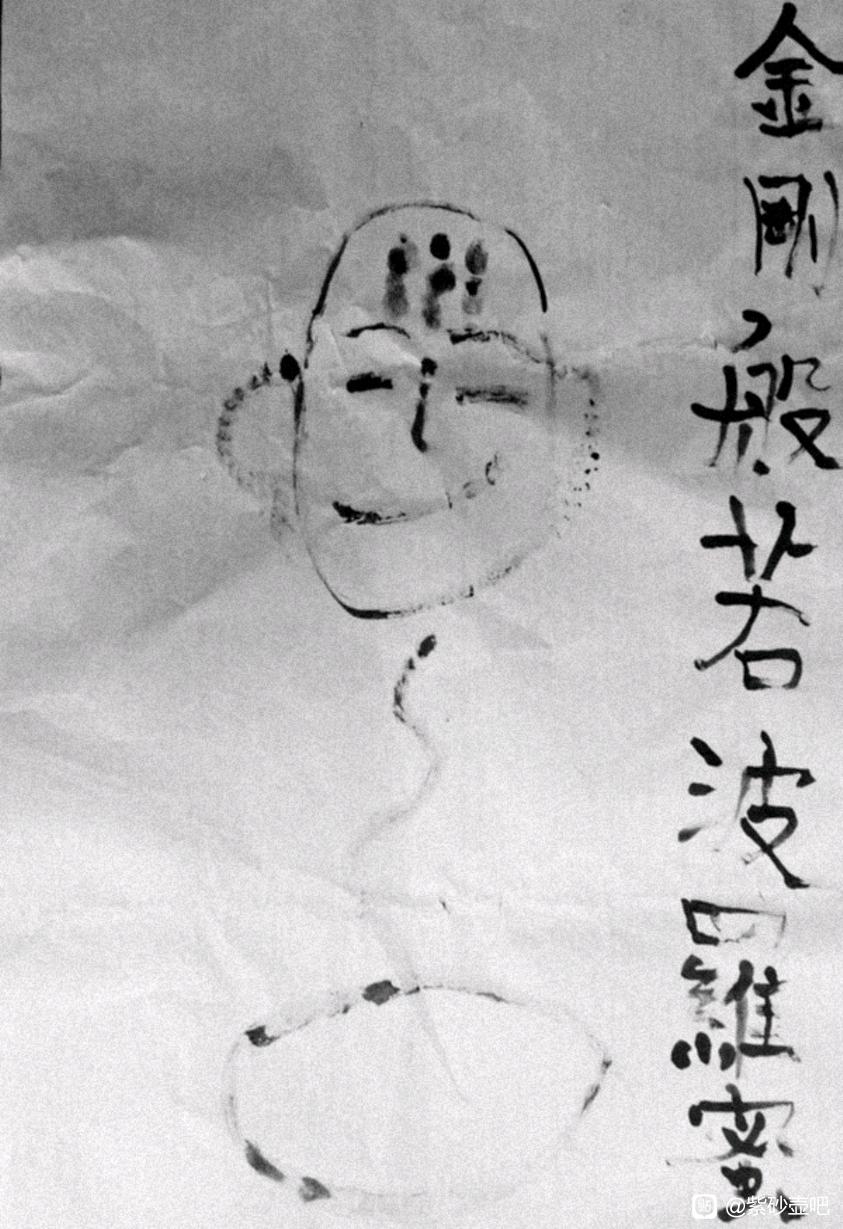 金剛般若波羅蜜
@紫砂壶吧